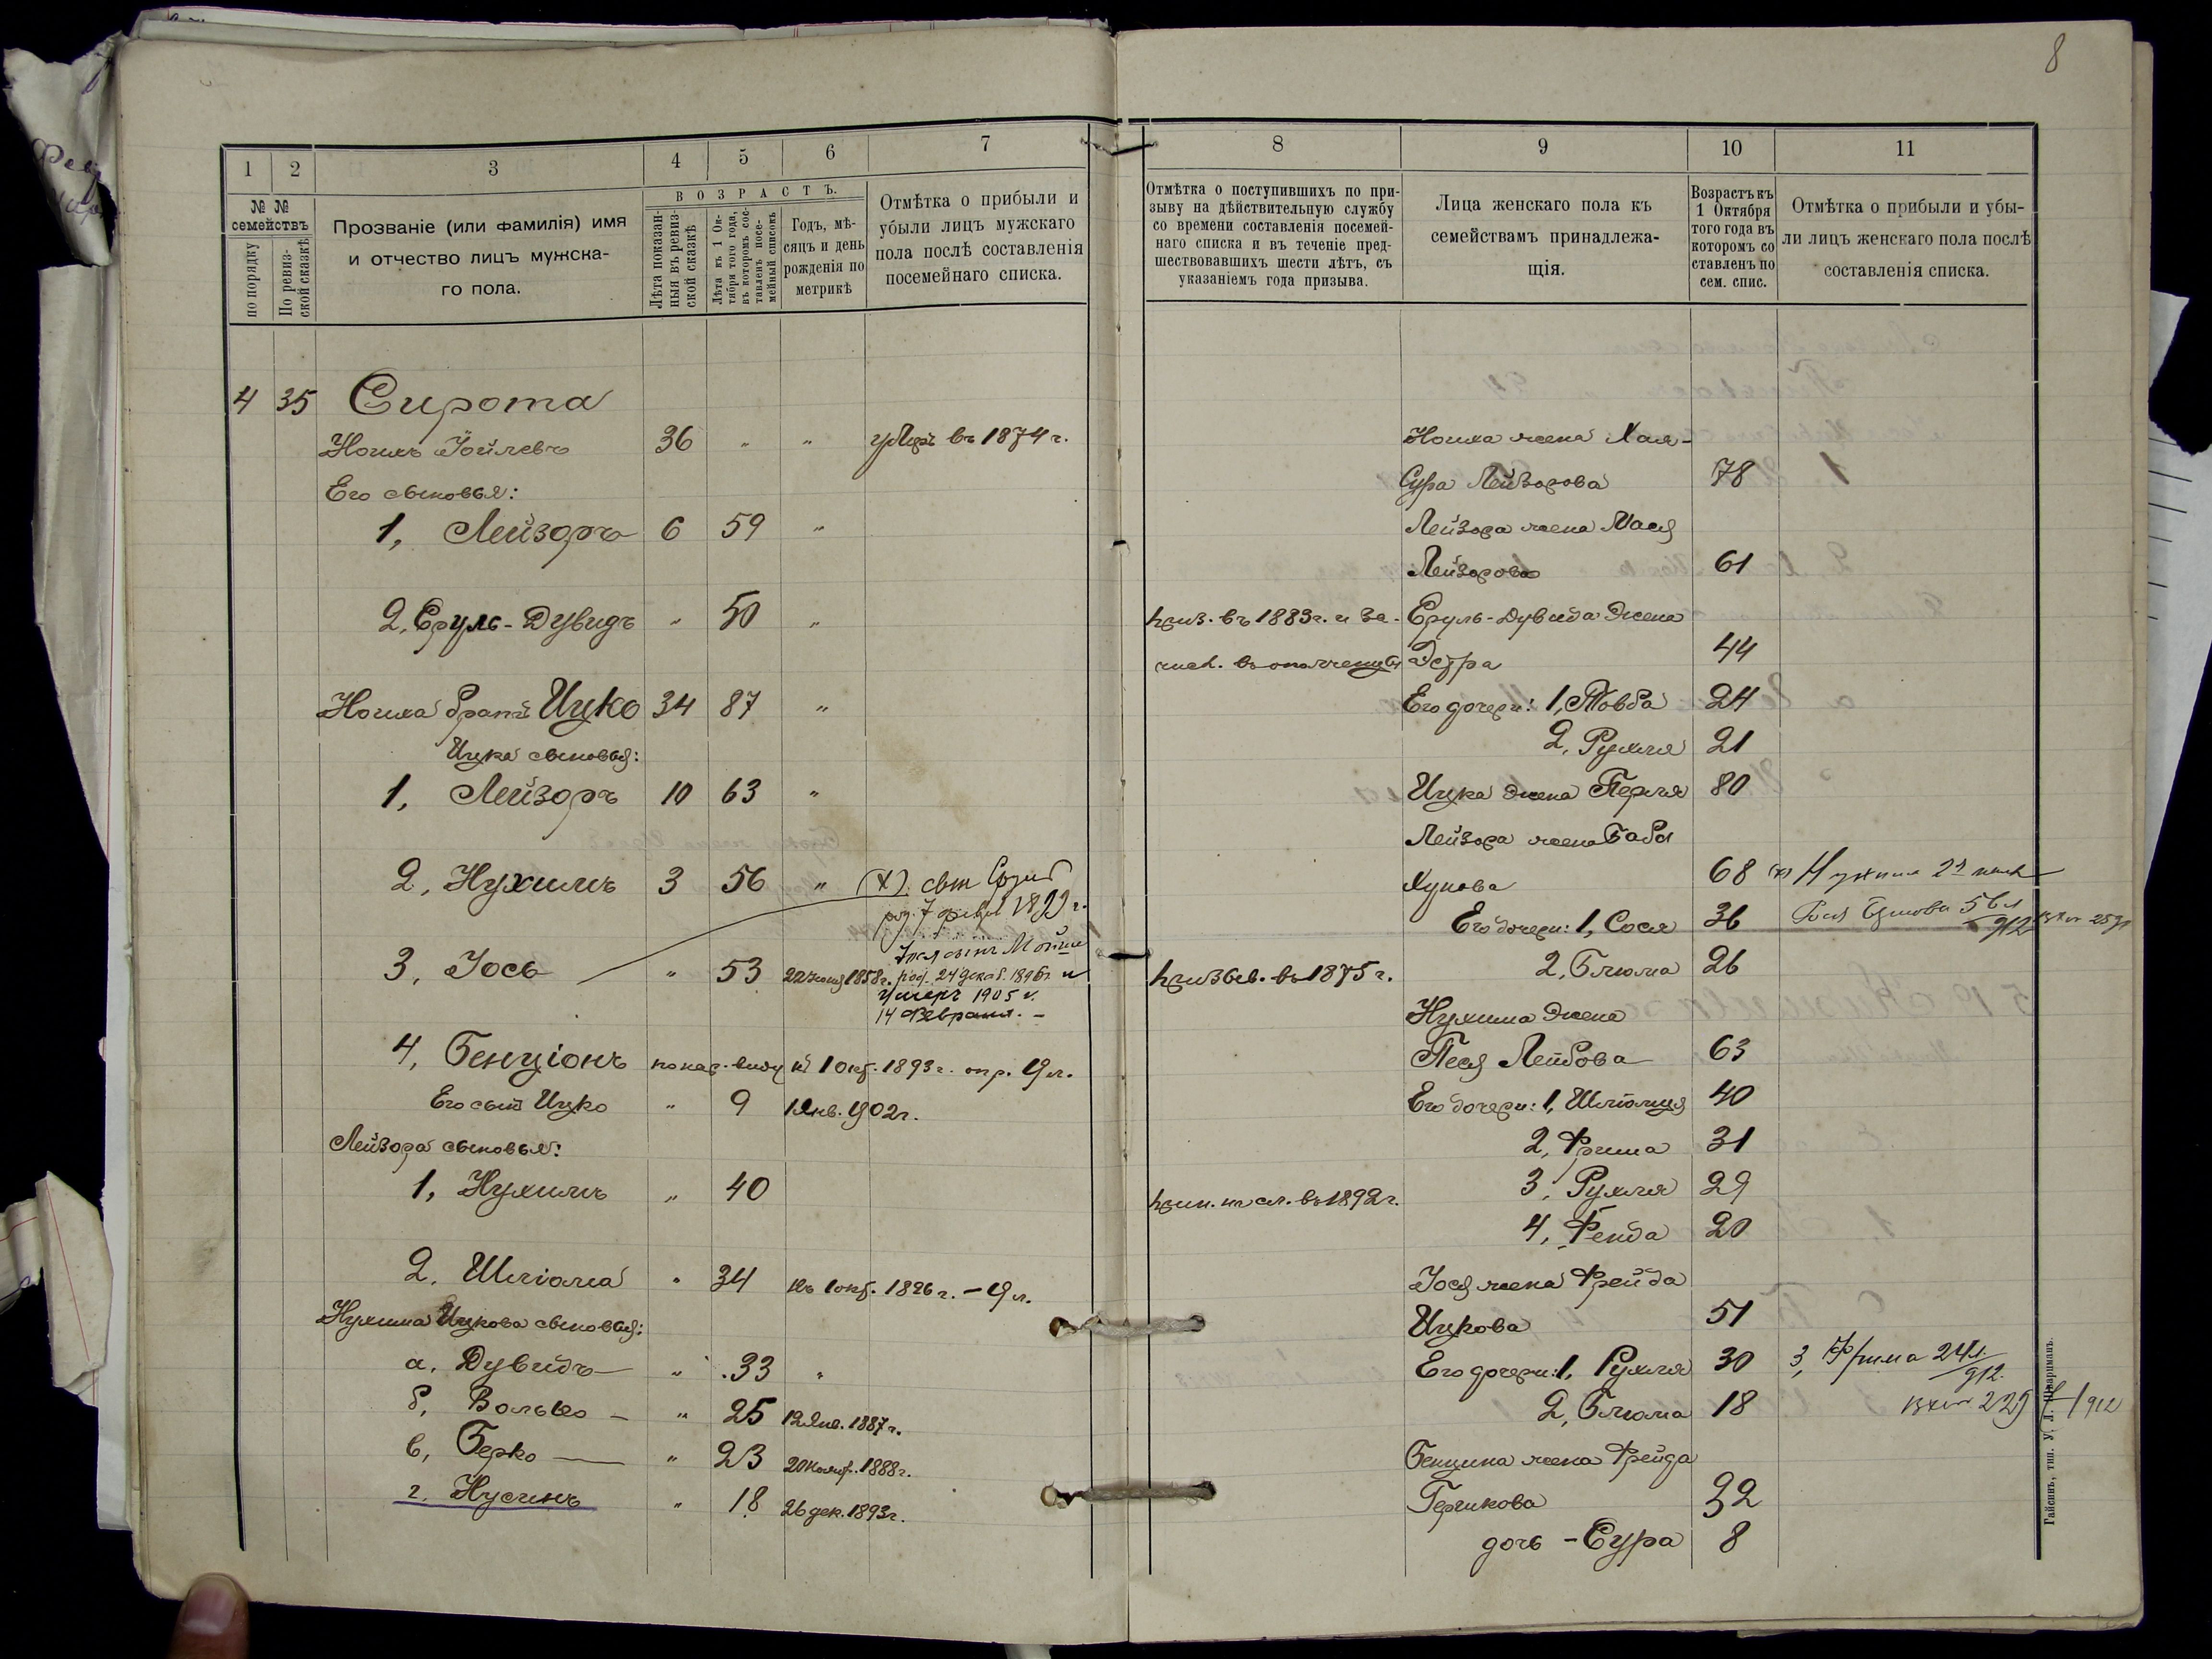 8
1
2
3
4
5
6
7
№ №
семействъ
по порядку
По ревиз-
ской сказкѣ
Прозваніе (или фамилія) имя
и отчество лицъ мужска-
го пола.
ВОЗРАСТЪ.
Лѣта показан-
ныя въ ревиз-
ской сказкѣ
Лѣта къ 1 Ок-
тября того года,
въ которомъ сос-
тавленъ посе-
мейный списокъ
Годъ, мѣ-
сяцъ и день
рожденія по
метрикѣ
Отмѣтка о прибыли и
убыли лицъ мужскаго
пола послѣ составленія
посемейнаго списка.
4 35 Сирота
36 " " въ 1874 г.
Его сыновья:
1, Лейзоръ 6 59 "
2, Сруль-Дувидъ " 50 "
Нохима братъ Ицко 34 87 "
Ицка сыновья:
1, Лейзоръ 10 63 "
2, Нухимъ 3 56 " (х)
3, Іось " 53 1858г.
род. 24 декаб. 1896г. и
умеръ 1905 г.
14 Февраля. -
4, Бенціонъ по нар. виду къ 1 окт. 1893г. опр. 19 л.
Его сынъ Ицко " 9 1 Янв. 1902г.
Лейзора сыновья:
1, Нухимъ " 40
2, Шліома " 34 къ 1 окт. 1896 г. - 19 л.
Нухима Ицкова сыновья:
а, Дувидъ " 33 "
б, Волько " 25 12 Янв. 1887г.
в, Берко " 23 1888г.
г, Нусинъ " 18 26 дек. 1893г.
8
9
10
11
Отмѣтка о поступившихъ по при-
зыву на дѣйствительную службу
со времени составленія посемей-
наго списка и въ теченіе пред-
шествовавшихъ шести лѣтъ, съ
указаніемъ года призыва.
Лица женскаго пола къ
семействамъ принадлежа-
щія.
Возрастъ къ
1 Октября
того года въ
которомъ со
ставленъ по
сем. спис.
Отмѣтка о прибыли и убы-
ли лицъ женскаго пола послѣ
составленія списка.
Нохима жена Хая-
Сура Лейзорова 78
Лейзора жена Мася
Лейзорова 61
приз. въ 1883г. и за- Сруль-Дувида жена
числ. въ ополченцы 44
Его дочери: 1, Товба 24
2, Рухля 21
Ицка жена Перля 80
Лейзора жена Бабя
68 (х) Нухима 2я жена
Его дочери: 1, Сося 36 56 л 912
2, Блюма 26
призыв. въ 1875 г.
Нухима жена
Песя Лейбова 63
Его дочери: 1, 40
2, Фрима 31
прин. на сл. въ 1892г. 3, Рухля 29
4, Фейда 20
Іося жена Фрейда
Ицкова 51
Его дочери: 1, Рухля 30 3, Фрима 24 л. 912.
2, Блюма 18 229 1912
Бенціона жена Фрейда
Гершкова 32
дочь - Сура 8
Гайсинъ, тип. У. Л. Шваримань.